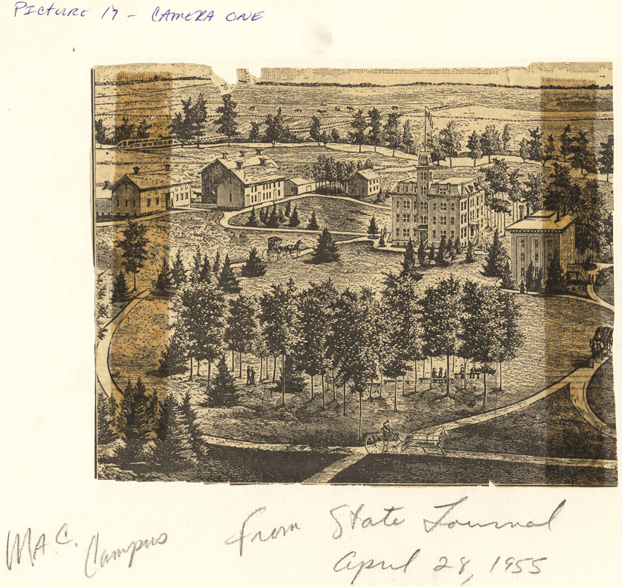 PICTURE 17 - CAMERA ONE
M.A.C. Campus
From State Journal
April 28, 1955